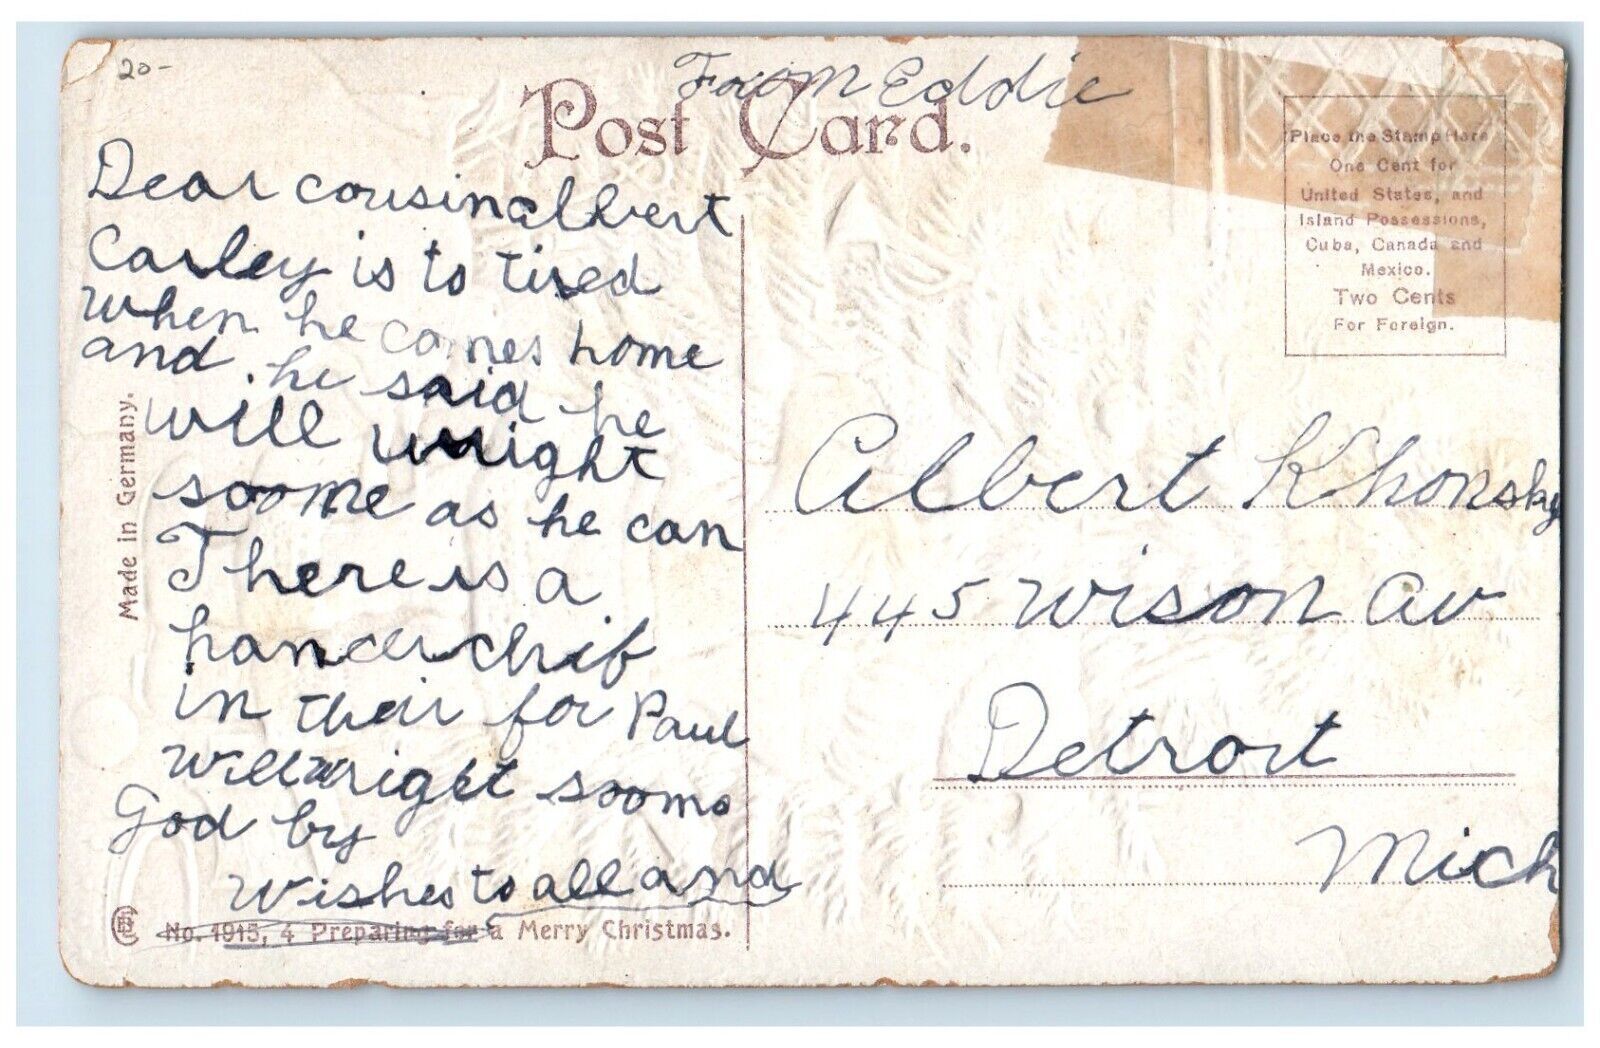 20-
From Eddie
Post Card.
Place the Stamp Here
One Cent for
United States, and
Island Possessions,
Cuba, Canada and
Mexico.
Two Cents
For Foreign.
Dear cousin albert
Carley is to tired
when he comes home
and he said he
will wright
soome as he can
There is a
hancerchif
in their for Paul
will wright soome
God by
wishes to all and
No. 1915, 4 Preparing for a Merry Christmas.
Made in Germany.
Albert Khonsky
445 Wison av
Detroit
Mich